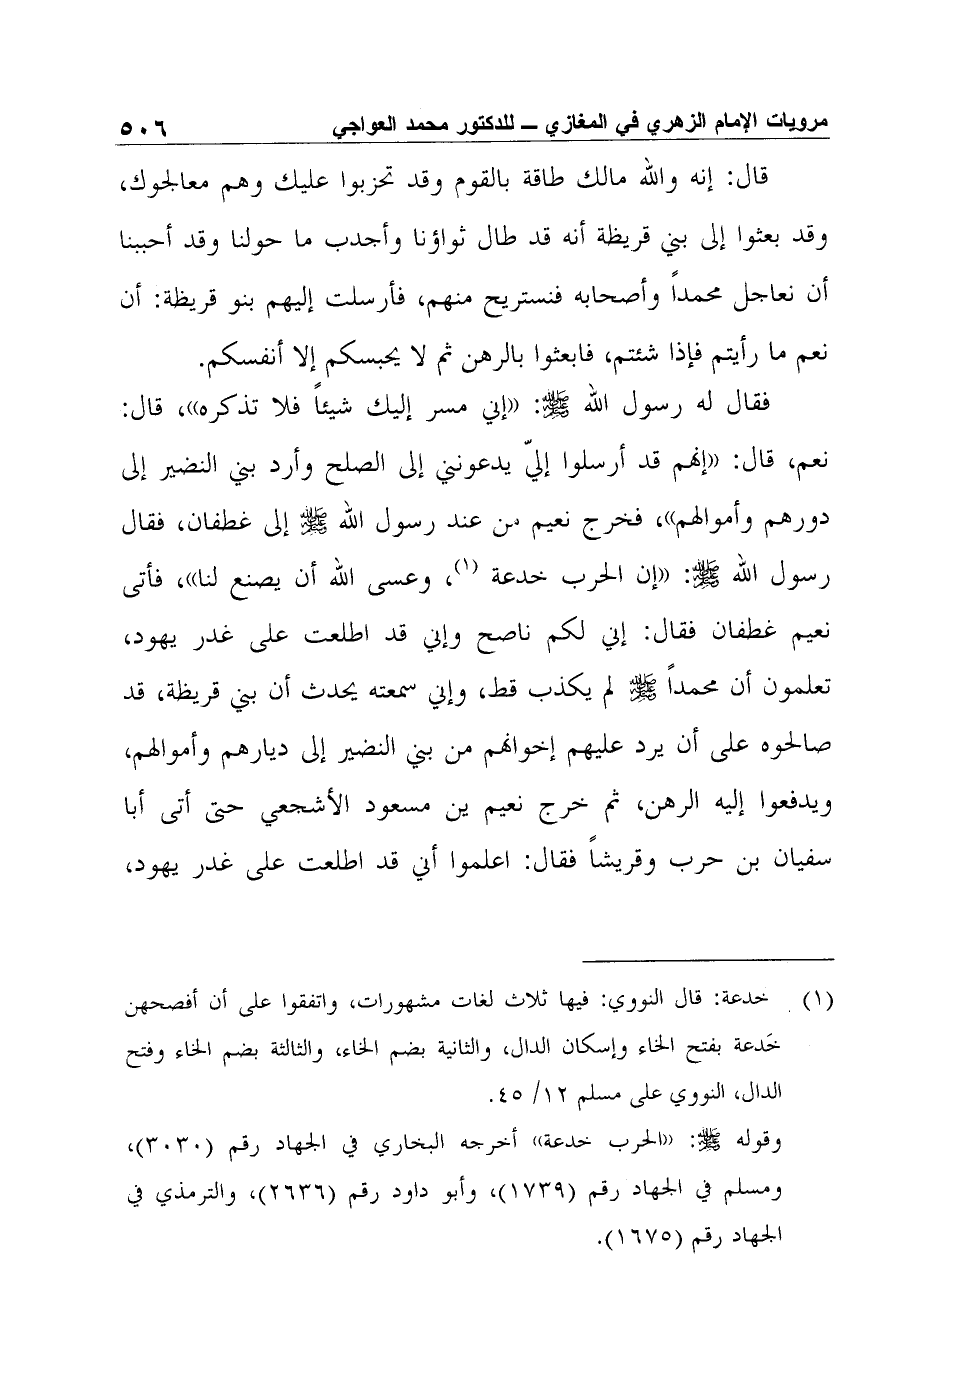 مرويات الإمام الزهري في المغازي ــ للدكتور محمد العواجي ٥٠٦
قال: إنه والله مالك طاقة بالقوم وقد تحزبوا عليك وهم معالجوك،
وقد بعثوا إلى بني قريظة أنه قد طال ثواؤنا وأجدب ما حولنا وقد أحببنا
أن نعاجل محمداً وأصحابه فنستريح منهم، فأرسلت إليهم بنو قريظة: أن
نعم ما رأيتم فإذا شئتم، فابعثوا بالرهن ثم لا يحبسكم إلا أنفسكم.
فقال له رسول الله ﷺ: «إني مسر إليك شيئاً فلا تذكره»، قال:
نعم، قال: «إنهم قد أرسلوا إليّ يدعونني إلى الصلح وأرد بني النضير إلى
دورهم وأموالهم»، فخرج نعيم من عند رسول الله ﷺ إلى غطفان، فقال
رسول الله ﷺ: «إن الحرب خدعة (١)، وعسى الله أن يصنع لنا»، فأتى
نعيم غطفان فقال: إني لكم ناصح وإني قد اطلعت على غدر يهود،
تعلمون أن محمداً ﷺ لم يكذب قط، وإني سمعته يحدث أن بني قريظة، قد
صالحوه على أن يرد عليهم إخوانهم من بني النضير إلى ديارهم وأموالهم،
ويدفعوا إليه الرهن، ثم خرج نعيم بن مسعود الأشجعي حتى أتى أبا
سفيان بن حرب وقريشاً فقال: اعلموا أني قد اطلعت على غدر يهود،
(١) خدعة: قال النووي: فيها ثلاث لغات مشهورات، واتفقوا على أن أفصحهن
خَدعة بفتح الخاء وإسكان الدال، والثانية بضم الخاء، والثالثة بضم الخاء وفتح
الدال، النووي على مسلم ١٢/ ٤٥.
وقوله ﷺ: «الحرب خدعة» أخرجه البخاري في الجهاد رقم (٣٠٣٠)،
ومسلم في الجهاد رقم (١٧٣٩)، وأبو داود رقم (٢٦٣٦)، والترمذي في
الجهاد رقم (١٦٧٥).